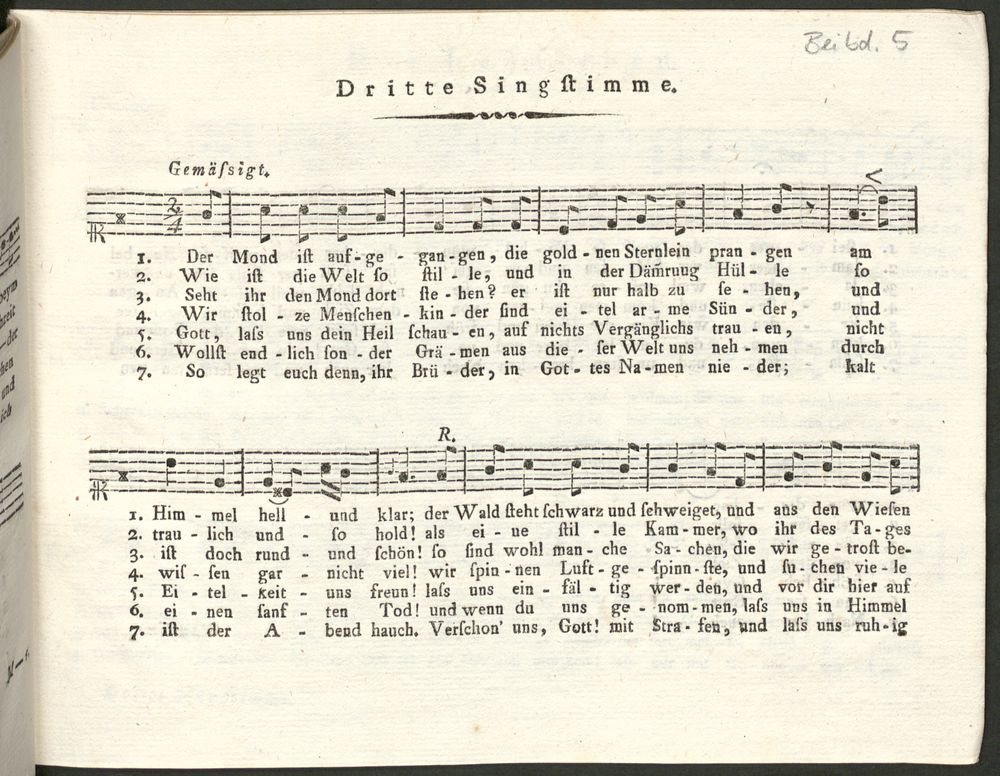 Beibd. 5
Dritte Singſtimme.
Gemäſsigt.
2/4
1. Der Mond iſt auf-ge - gan-gen, die gold - nen Sternlein pran - gen am
2. Wie iſt die Welt ſo ſtil - le, und in der Däm̃rung Hül - le ſo
3. Seht ihr den Mond dort ſte - hen? er iſt nur halb zu ſe - hen, und
4. Wir ſtol - ze Menſchen - kin - der ſind ei - tel ar - me Sün - der, und
5. Gott, laſs uns dein Heil ſchau - en, auf nichts Vergänglichs trau - en, nicht
6. Wollſt end - lich ſon - der Grä - men aus die - ſer Welt uns neh - men durch
7. So legt euch denn, ihr Brü - der, in Got - tes Na - men nie - der; kalt
R.
1. Him - mel hell - und klar; der Wald ſteht ſchwarz und ſchweiget, und aus den Wieſen
2. trau - lich und - ſo hold! als ei - ne ſtil - le Kam - mer, wo ihr des Ta - ges
3. iſt doch rund - und ſchön! ſo ſind wohl man - che Sa - chen, die wir ge - troſt be-
4. wiſ - ſen gar - nicht viel! wir ſpin - nen Luft - ge - ſpinn - ſte, und ſu - chen vie - le
5. Ei - tel - keit - uns freun! laſs uns ein - fäl - tig wer - den, und vor dir hier auf
6. ei - nen ſanf - ten Tod! und wenn du uns ge - nom - men, laſs uns in Himmel
7. iſt der A - bend hauch. Verſchon' uns, Gott! mit Stra - fen, und laſs uns ruh - ig